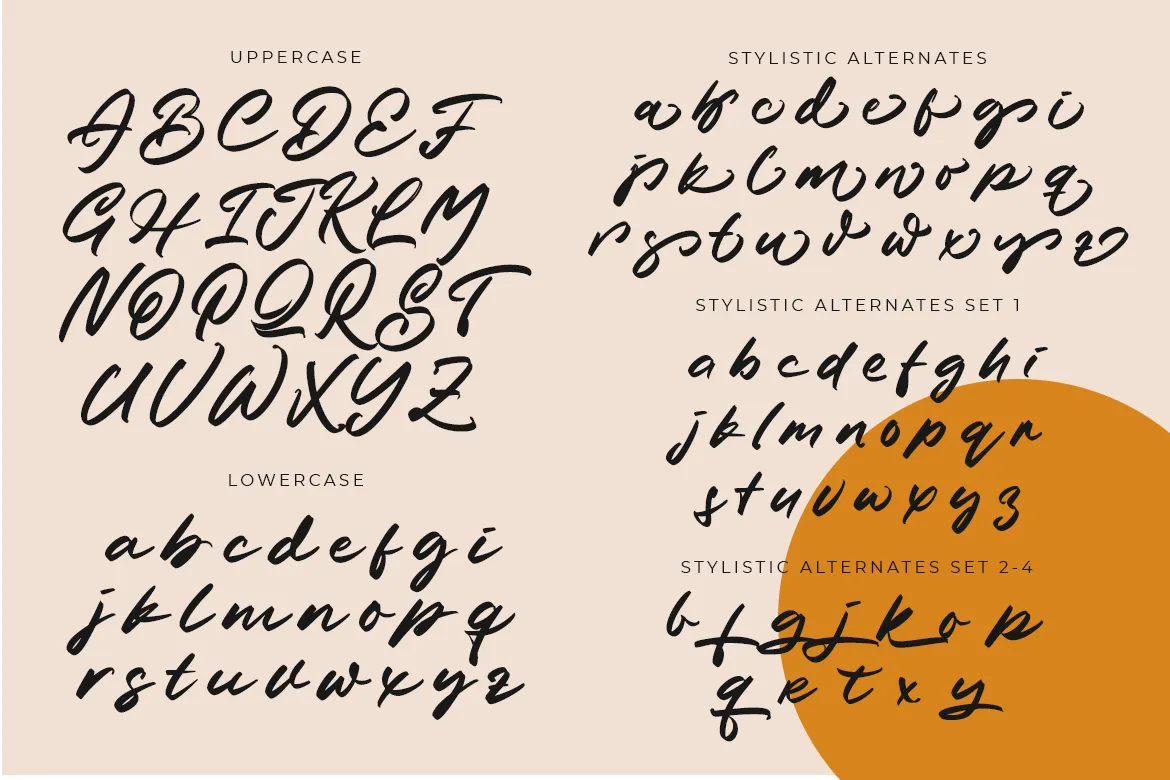 UPPERCASE
A B C D E F
G H I J K L M
N O P Q R S T
U V W X Y Z
LOWERCASE
a b c d e f g i
j k l m n o p q
r s t u v w x y z
STYLISTIC ALTERNATES
a b c d e f g s i
j s k l m n o p q
r s t u v w x y z
STYLISTIC ALTERNATES SET 1
a b c d e f g h i
j k l m n o p q r
s t u v w x y z
STYLISTIC ALTERNATES SET 2-4
b f g j k o p
q r t x y